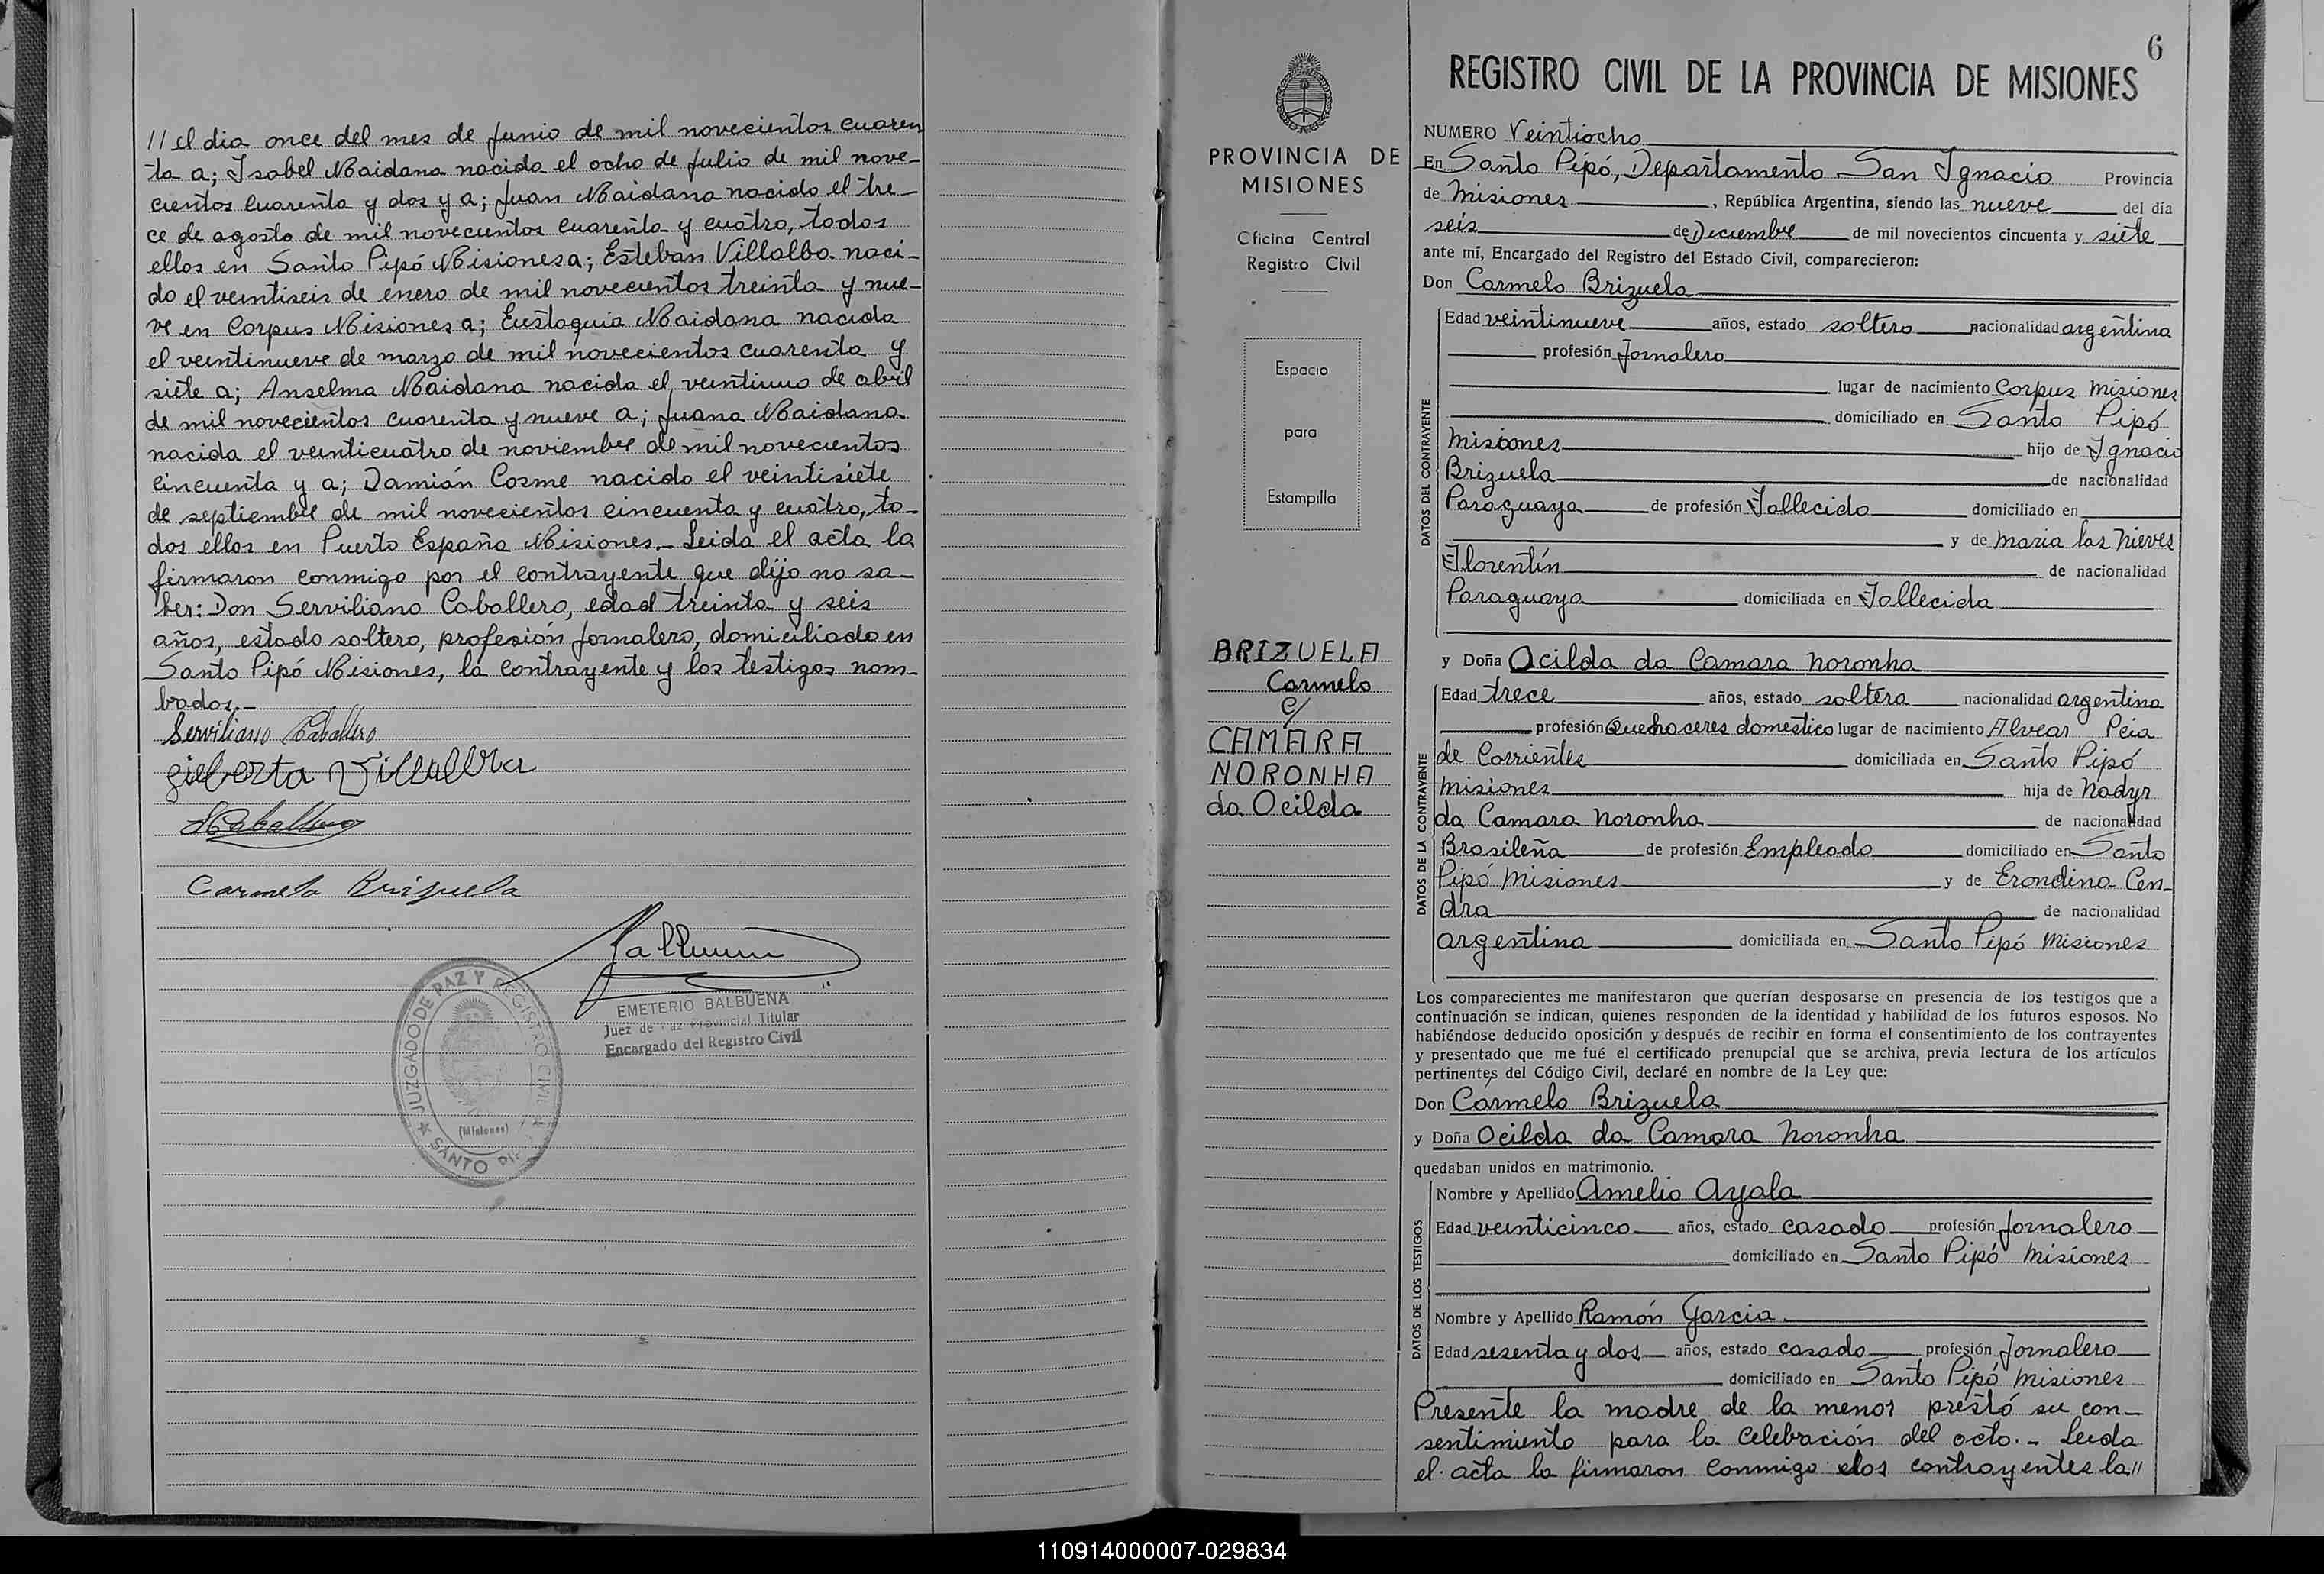 // el dia once del mes de Junio de mil novecientos cuaren
ta a; Isabel Maidana nacida el ocho de Julio de mil nove-
cientos cuarenta y dos y a; Juan Maidana nacido el tre-
ce de agosto de mil novecientos cuarenta y cuatro, todos
ellos en Santo Pipó Misiones a; Esteban Villalba naci-
do el veintiseis de enero de mil novecientos treinta y nue-
ve en Corpus Misiones a; Eustaquia Maidana nacida
el veintinueve de marzo de mil novecientos cuarenta y
siete a; Anselma Maidana nacida el veintiuno de abril
de mil novecientos cuarenta y nueve a; Juana Maidana
nacida el veinticuatro de noviembre de mil novecientos
cincuenta y a; Damián Cosme nacido el veintisiete
de septiembre de mil novecientos cincuenta y cuatro, to-
dos ellos en Puerto España Misiones.- Leida el acta la
firmaron conmigo por el contrayente que dijo no sa-
ber: Don Serviliano Caballero, edad treinta y seis
años, estado soltero, profesión Jornalero, domiciliado en
Santo Pipó Misiones, la contrayente y los testigos nom-
brados.-
Serviliano Caballero
gilberta Villalba
Caballero
Carmelo Brizuela
EMETERIO BALBUENA
Juez de Paz Provincial Titular
Encargado del Registro Civil
JUZGADO DE PAZ Y REGISTRO CIVIL
(Misiones)
SANTO PIPÓ
PROVINCIA DE
MISIONES
Oficina Central
Registro Civil
Espacio
para
Estampilla
BRIZUELA
Carmelo
c/
CAMARA
NORONHA
da Ocilda
6
REGISTRO CIVIL DE LA PROVINCIA DE MISIONES
NUMERO Veintiocho
En Santo Pipó, Departamento San Ignacio Provincia
de Misiones, República Argentina, siendo las nueve del día
seis de Diciembre de mil novecientos cincuenta y siete
ante mí, Encargado del Registro del Estado Civil, comparecieron:
Don Carmelo Brizuela
DATOS DEL CONTRAYENTE
Edad veintinueve años, estado soltero nacionalidad argentina
profesión Jornalero
lugar de nacimiento Corpus Misiones
domiciliado en Santo Pipó
Misiones hijo de Ignacio
Brizuela de nacionalidad
Paraguaya de profesión Fallecido domiciliado en
y de Maria las Nieves
Florentín de nacionalidad
Paraguaya domiciliada en Fallecida
y Doña Ocilda da Camara Noronha
DATOS DE LA CONTRAYENTE
Edad trece años, estado soltera nacionalidad argentina
profesión Quehaceres domestico lugar de nacimiento Alvear Pcia
de Corrientes domiciliada en Santo Pipó
Misiones hija de Nadyr
da Camara Noronha de nacionalidad
Brasileña de profesión Empleado domiciliado en Santo
Pipó Misiones y de Erondina Cen-
dra de nacionalidad
argentina domiciliada en Santo Pipó Misiones
Los comparecientes me manifestaron que querían desposarse en presencia de los testigos que a
continuación se indican, quienes responden de la identidad y habilidad de los futuros esposos. No
habiéndose deducido oposición y después de recibir en forma el consentimiento de los contrayentes
y presentado que me fué el certificado prenupcial que se archiva, previa lectura de los artículos
pertinentes del Código Civil, declaré en nombre de la Ley que:
Don Carmelo Brizuela
y Doña Ocilda da Camara Noronha
quedaban unidos en matrimonio.
DATOS DE LOS TESTIGOS
Nombre y Apellido Amelio Ayala
Edad veinticinco años, estado casado profesión Jornalero
domiciliado en Santo Pipó Misiones
Nombre y Apellido Ramón Garcia
Edad sesenta y dos años, estado casado profesión Jornalero
domiciliado en Santo Pipó Misiones
Presente la madre de la menor prestó su con-
sentimiento para la celebración del acto.- Leida
el acta la firmaron conmigo los contrayentes la//
110914000007-029834